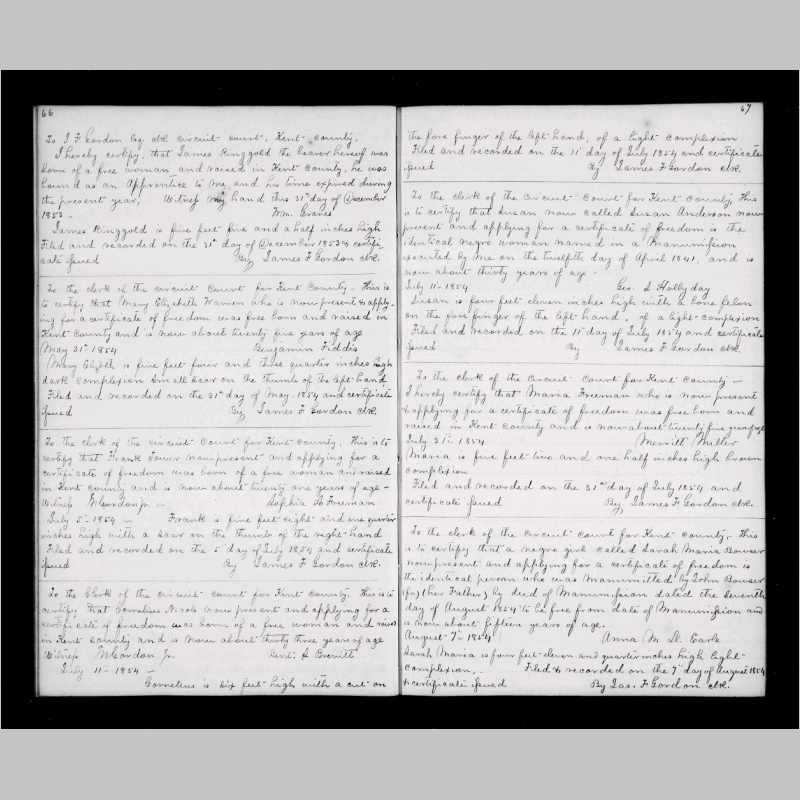 66
To J F Gordon Esq clk circuit court, Kent county.
I hereby certify, that James Ringgold the bearer hereof was
born of a free woman and raised in Kent County, he was
bound as an Apprentice to me, and his time expired during
the present year, Witness my hand this 31st day of December
1853 - Wm. Graves
James Ringgold is five feet five and a half inches high
Filed and recorded on the 31st day of December 1853 & certifi
cate issued By James F Gordon clk.
To the clerk of the circuit court for Kent County - This is
to certify that Mary Elizabeth Warner who is now present & apply-
ing for a certificate of freedom was free born and raised in
Kent county and is now about twenty five years of age
May 31st 1854 Benjamin Fiddis
Mary Elizbth is five feet four and three quarter inches high
dark complexion small scar on the thumb of the left hand
Filed and recorded on the 31st day of May 1854 and certificate
issued By James F Gordon clk.
To the clerk of the circuit Court for Kent County, This is to
certify that Frank now present and applying for a
certificate of freedom was born of a free woman and raised
in Kent county and is now about twenty one years of age -
Witness W Gordon Jr. - Sophia Freeman
July 5th 1854 - Frank is five feet eight and one quarter
inches high with a scar on the thumb of the right hand
Filed and recorded on the 5 day of July 1854 and certificate
issued By James F Gordon clk.
To the Clerk of the circuit court for Kent County. This is to
certify that Cornelius now present and applying for a
certificate of freedom was born of a free woman and raised
in Kent county and is now about thirty three years of age
Witness W Gordon Jr.
July 11th 1854 -
Cornelius is six feet high with a cut on
67
the fore finger of the left hand, of a light complexion
Filed and recorded on the 11th day of July 1854 and certificate
issued By James F Gordon clk.
To the clerk of the Circuit Court for Kent County, This
is to certify that Susan now called Susan Anderson now
present and applying for a certificate of freedom is the
identical negro woman named in a Manumission
executed by me on the twelfth day of April 1841. and is
now about thirty years of age -
July 11th 1854 Geo. S Hollyday
Susan is four feet eleven inches high with a bone felon
on the fore finger of the left hand, of a light complexion
Filed and recorded on the 11th day of July 1854 and certificate
issued By James F Gordon clk.
To the clerk of the Circuit Court for Kent County -
I hereby certify that Maria Freeman who is now present
& applying for a certificate of freedom was free born and
raised in Kent County and is now about twenty five years of age
July 31st 1854 Merritt Miller
Maria is five feet two and one half inches high brown
complexion
Filed and recorded on the 31st day of July 1854 and
certificate issued By James F Gordon clk.
To the clerk of the circuit court for Kent county, This
is to certify that a negro girl called Sarah Maria Bouser
now present and applying for a certificate of freedom is
the identical person who was Manumitted by John Bouser
(her Father) by deed of Manumission dated the seventh
day of August 1854 to be free from date of Manumission and
is now about fifteen years of age.
August 7th 1854 Anna M. D. Earle
Sarah Maria is four feet eleven and quarter inches high light
complexion. - Filed & recorded on the 7th day of August 1854
& certificate issued By Jas. F Gordon clk.